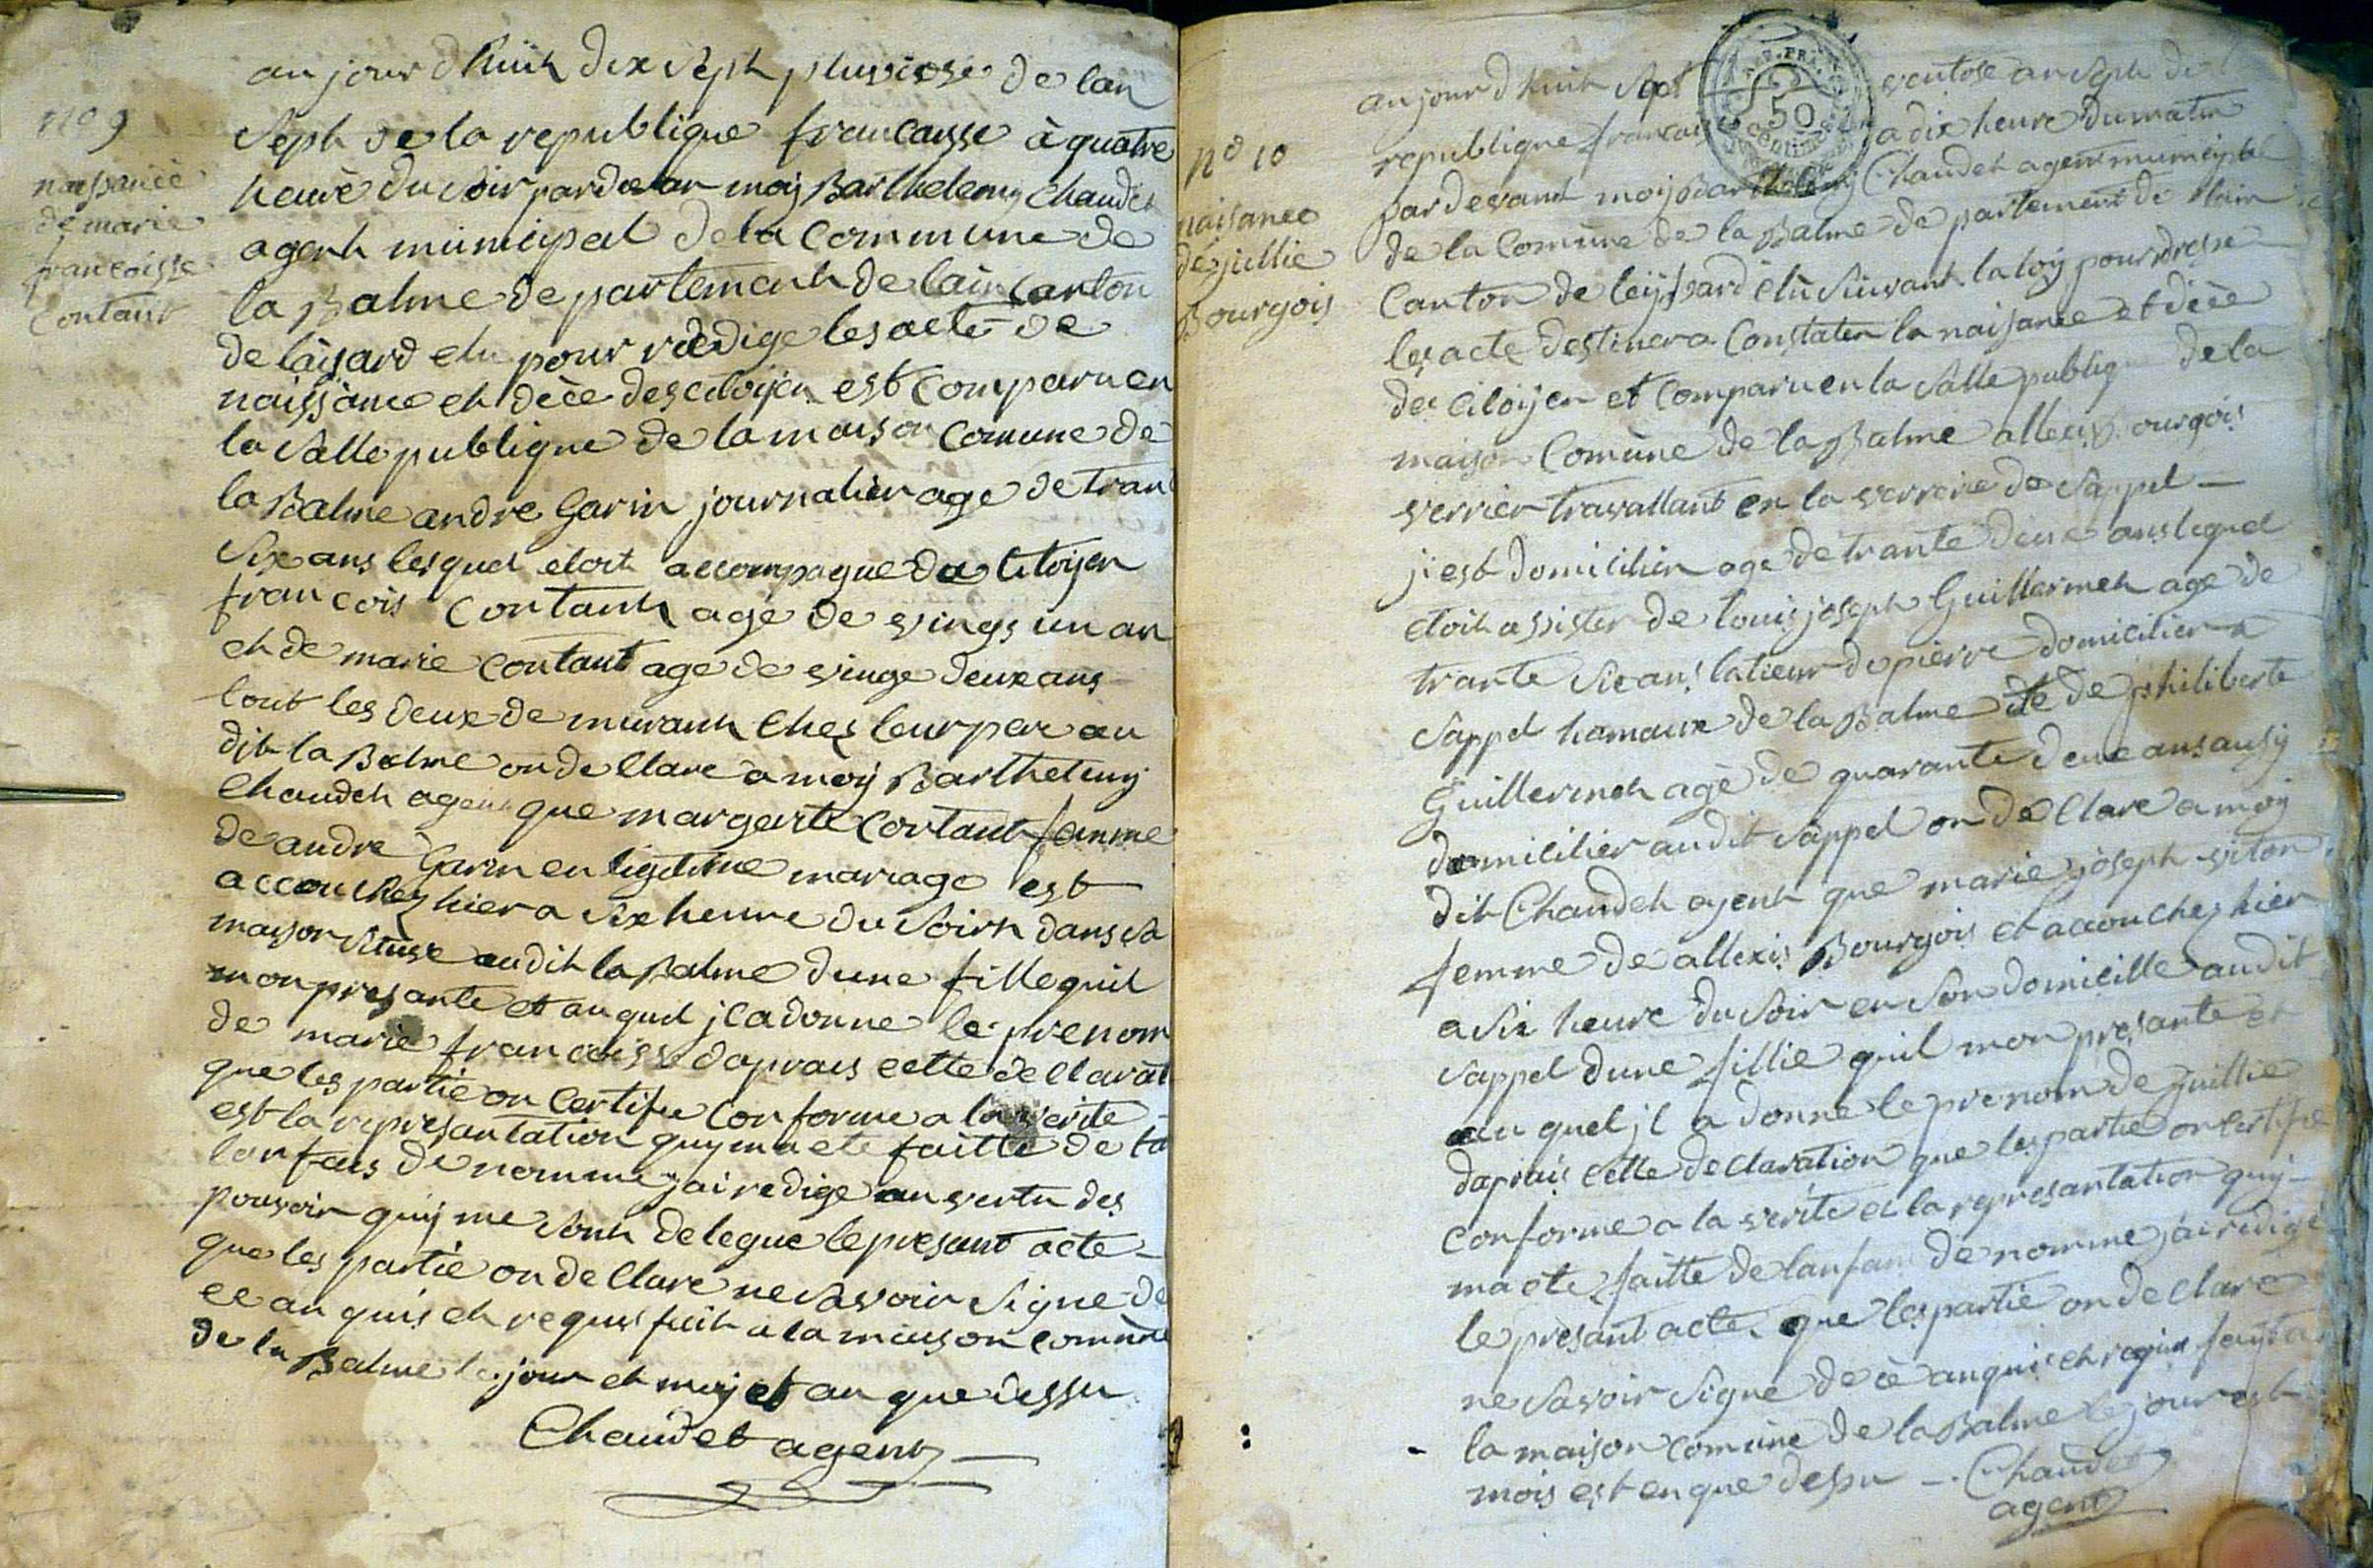 no 9
naissance
de marie
francoisse
Contant
au jour dhuih dix seph pluviose de lan
seph de la republique francausse à quatre
heure du soir pardevan moy Barthelemy chaudet
agenh municipal de la Commune de
la Balme departemenh de lain Canton
de laisard elu pour redige les acte de
naissance eh dèce des citoijen est comparu en
la salle publique de la maison comune de
la Balme andre Garin journalier age de tran
six ans lesquel etoit accompagne du Citoijen
francois Contanh age de vings un an
eh de marie contant age de vinge deux ans
tout les deux de muranh Ches leur pere au
dit la Balme on de Clare a moij Barthelemij
Chaudeh agenh que margerite Contant femme
de andre Garin en ligitime mariage est
accouchez hier a six heure du soirh dans sa
maison situse audih la Balme dune fille quil
mon presante et au quel jl a donne le prenom
de marie francoisse daprais cette declarat
que les partie on Certifie conforme a la verite
est la represantation quy ma ete faitte de la
lanfans denomme jai redige au vertu des
pouvoir quij me sonh delegue le presant acte
que les partie on de Clare ne savoir signe de
ce anquis eh requis faih a la maison comune
de la Balme le jour eh moij et an que dessu
Chaudet agent
no 10
naisance
de jullie
Bourgois
au jour dhuih sept ventose an seph de
republique francais a dix heure du matin
pardevant moij Barthelemij Chaudeh agent municipal
de la Comune de la Balme departement de lain
Canton de leijssard elu suivanh la loij pour dresse
les acte destiner a Constater la naisance et dèce
des Citoijen et Comparu en la salle publique de la
maison Comune de la Balme allexis Bourgois
verrier travallant en la verrerie de sappel
ji est domicilier age de trante deux ans lequel
etoih assister de louis joseph Guillermeh age de
trante six ans tatieur de pierre domicilier a
sappel hamaux de la Balme et de philiberte
Guillermeh age de quarante deux ans ausij
domicilier audit sappel on de Clare a moij
dih Chaudeh agenh que marie joseph viton
femme de allexis Bourgois et accouchez hier
a six heure du soir en son domicille audit
sappel dune fillie quil mon presante et
au quel jl a donne le prenom de juillie
daprais cette declaration que les partie on certifie
conforme a la verite eh la represantation quij
ma ete faitte de lanfan denomme jai redige
le presant acte que les partie on de Clare
ne savoir signe de ce anquis eh requis faijt a
la maison comune de la Balme le jour est
mois est en que dessu Chaudet
agent
REP. FRA.
50
centimes